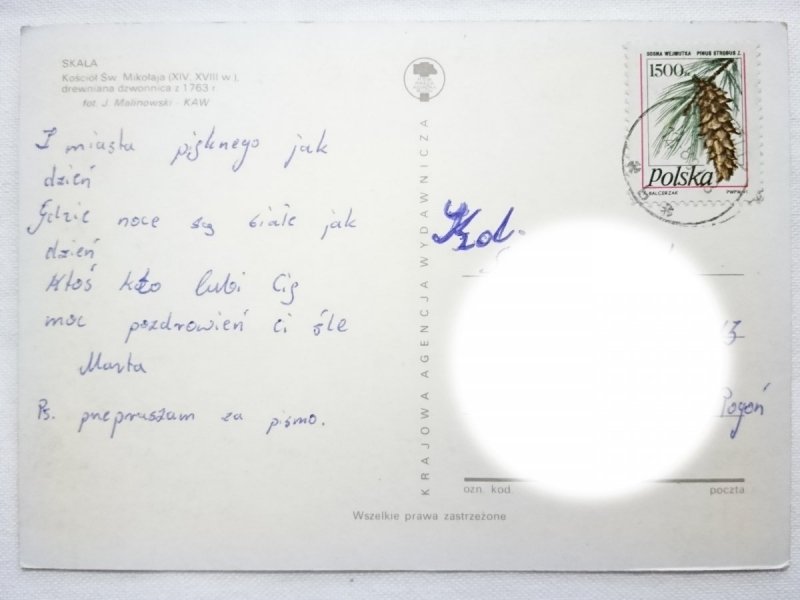 SKAŁA
Kościół Św. Mikołaja (XIV, XVIII w.),
drewniana dzwonnica z 1763 r.
fot. J. Malinowski - KAW
Z miasta pięknego jak
dzień
Gdzie noce są białe jak
dzień
Ktoś kto lubi Cię
moc pozdrowień ci śle
Marta
Ps. pnepruszam za pismo.
KRAJOWA AGENCJA WYDAWNICZA
SOSNA WEJMUTKA PINUS STROBUS L.
1500zł
Polska
BALCERZAK PWPW
Kol.
13
Pogoń
ozn. kod. poczta
Wszelkie prawa zastrzeżone